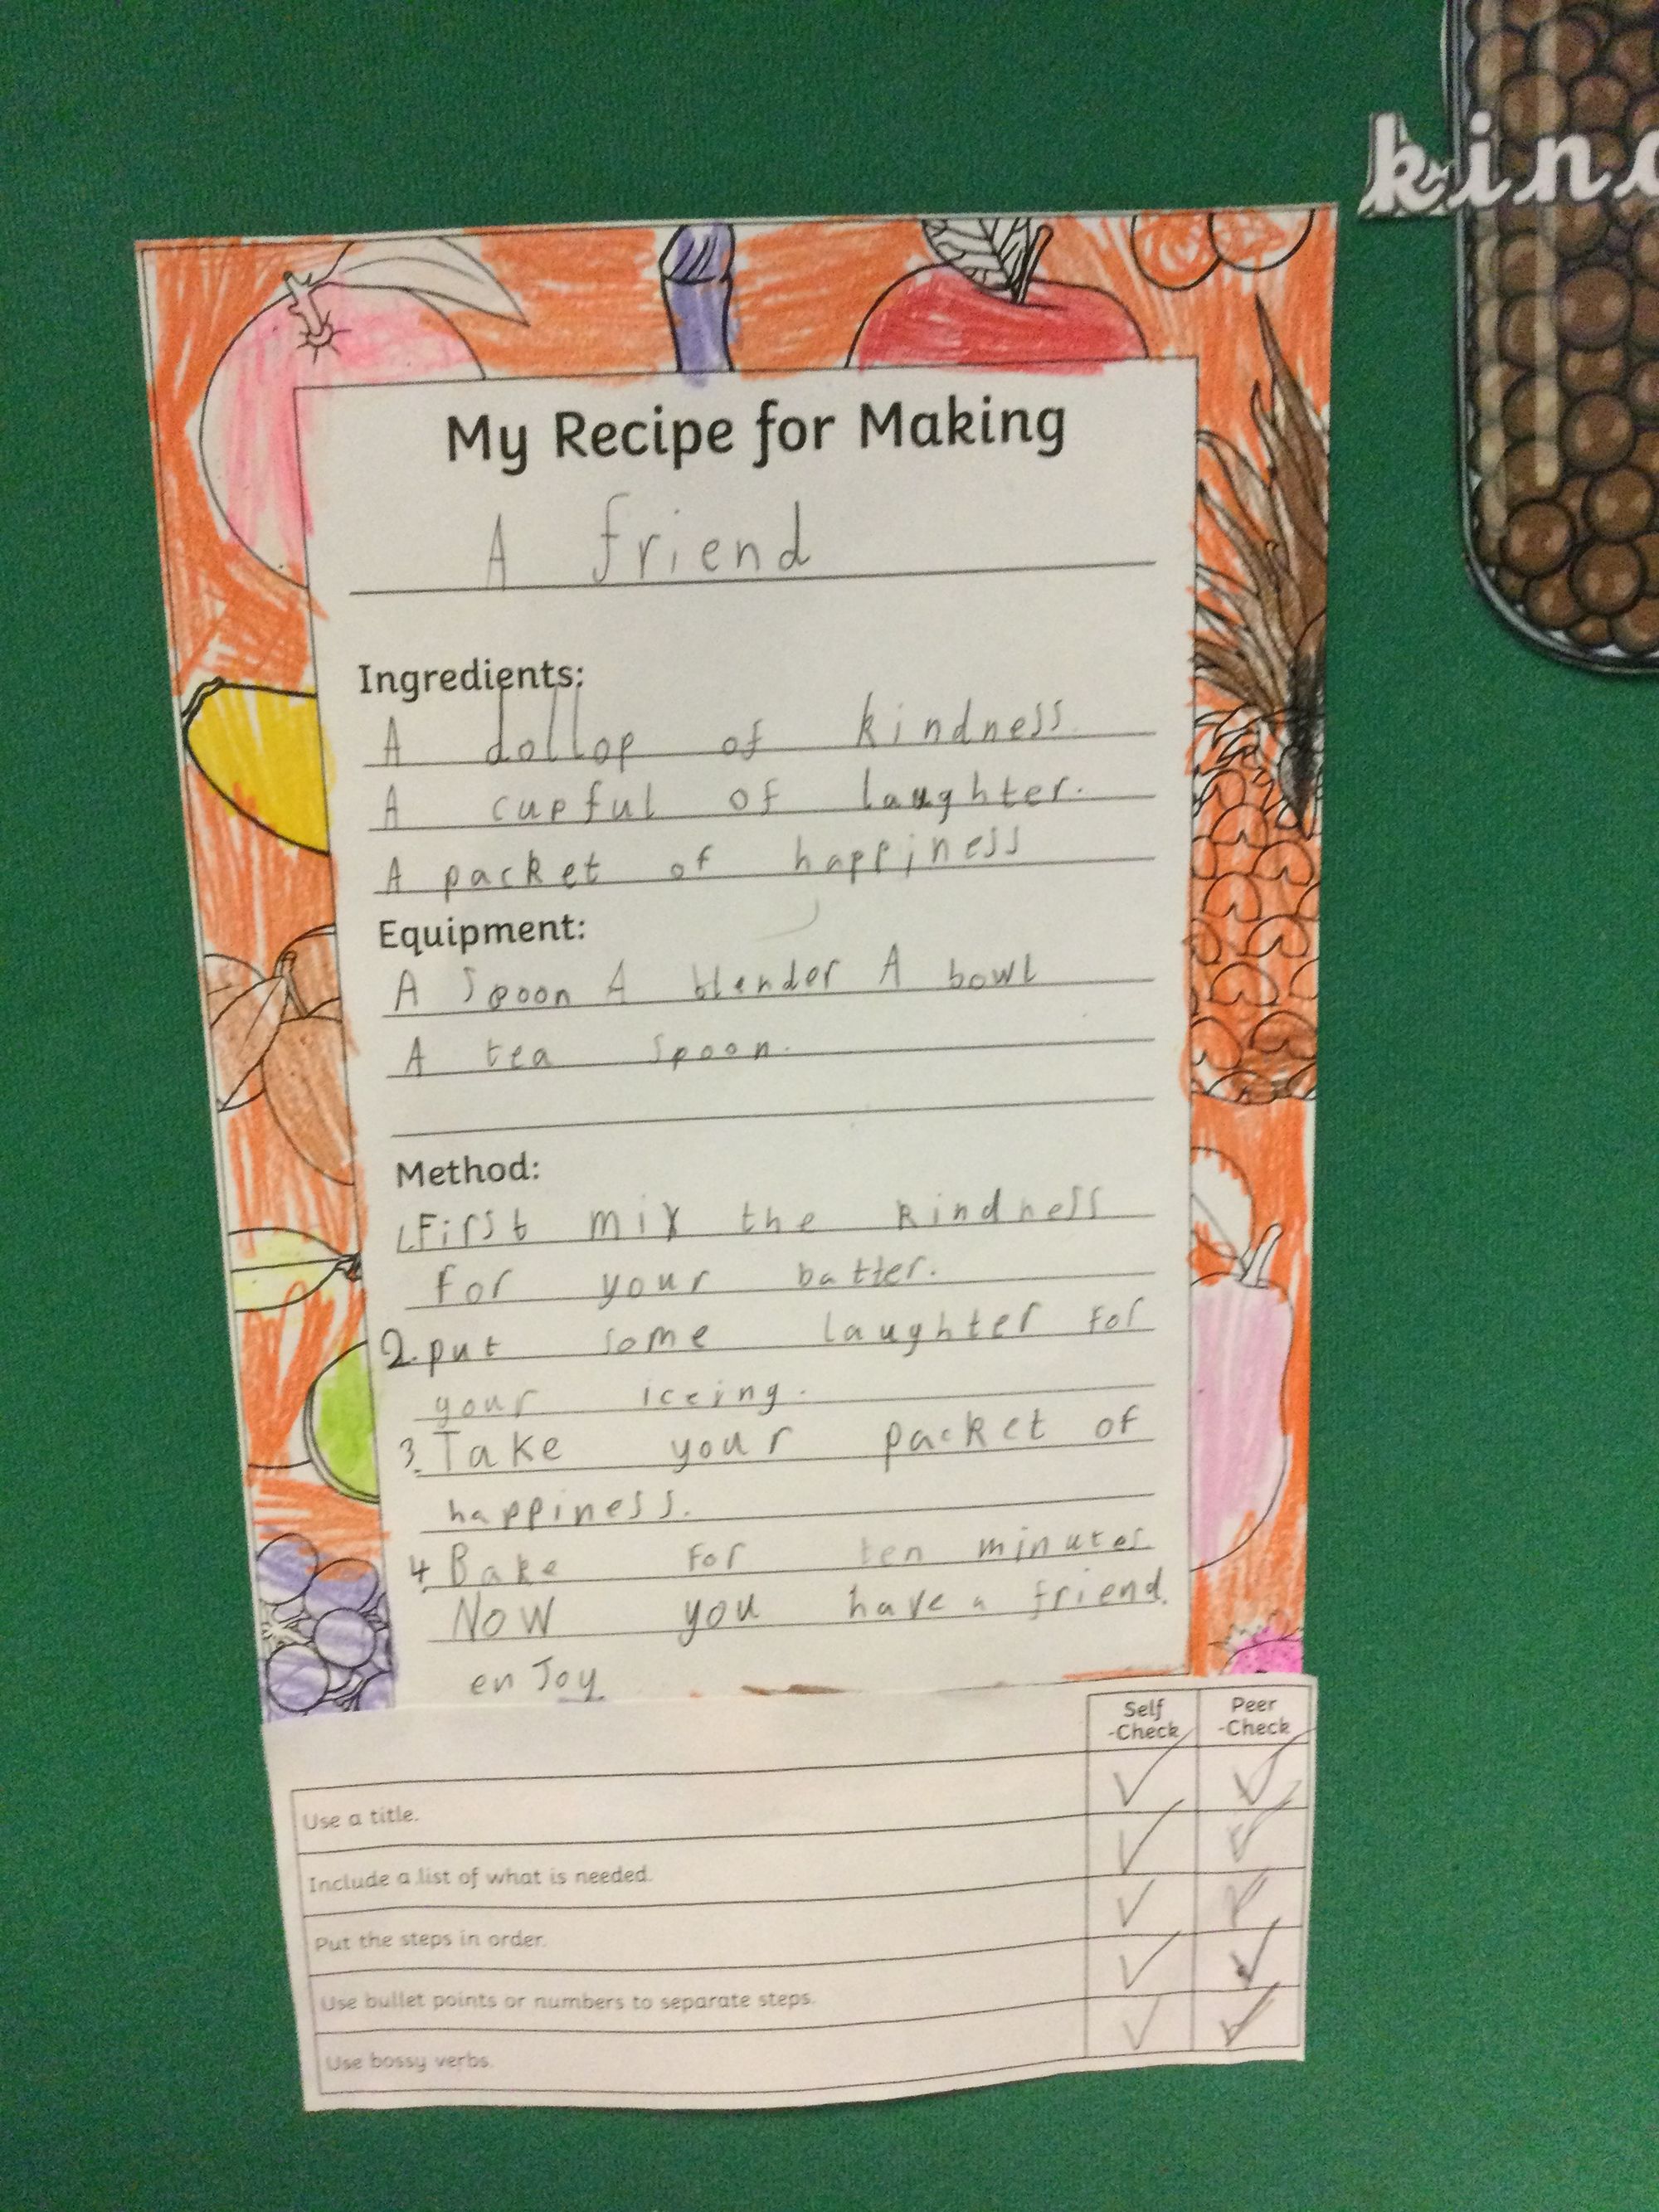 kind
My Recipe for Making
A friend
Ingredients:
A dollop of kindness.
A cupful of laughter.
A packet of happiness
Equipment:
A spoon A blender A bowl
A tea spoon.
Method:
1. First mix the kindness
for your batter.
2. put some laughter for
your iceing.
3. Take your packet of
happiness.
4. Bake for ten minutes
Now you have a friend.
enJoy
Self
-Check
Peer
-Check
Use a title.
Include a list of what is needed.
Put the steps in order.
Use bullet points or numbers to separate steps.
Use bossy verbs.